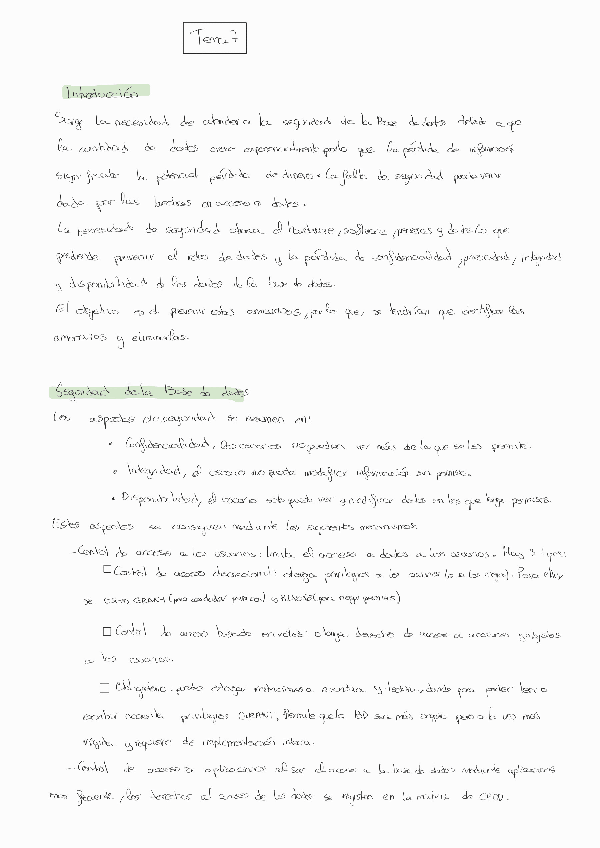 Tema 7
Introducción
Surge la necesidad de atender a la seguridad de la Base de datos debido a que
la cantidad de datos crece exponencialmente puesto que la pérdida de información
la potencial pérdida de dinero. La falta de seguridad puede venir
dada por los accesos a datos.
La de seguridad abarca el Hardware, software, personas y datos. Lo que
pretende prevenir el robo de datos y la pérdida de confidencialidad, privacidad, integridad
y disponibilidad de los datos de la base de datos.
El objetivo es el prevenir estas amenazas, por lo que, se tendrían que identificar las
amenazas y eliminarlas.
Seguridad de la Base de datos
Los aspectos de seguridad se resumen en:
• Confidencialidad, los usuarios no puedan ver más de lo que se les permite.
• Integridad, el usuario no pueda modificar información sin permiso.
• Disponibilidad, el usuario solo pueda ver y modificar datos en los que tenga permisos.
Estos aspectos se consiguen mediante los siguientes mecanismos:
- Control de acceso a los usuarios: limita el acceso a datos a los usuarios. Hay 3 tipos:
□ Control de acceso discrecional: otorga privilegios a los usuarios (o a los roles). Para ello,
se usan GRANT (para conceder permisos) y REVOKE (para negar permisos)
□ Control de acceso basado en niveles: otorga derechos de acceso a usuarios y objetos
a los usuarios.
□ Obligatorio: puede otorgar restricciones a escritura y lectura, donde para poder leer o
escribir necesita privilegios GRANT, Permite que la BD sea más segura pero a la vez más
rígida y requiere de implementación
- Control de acceso a aplicaciones: el acceso a la base de datos mediante aplicaciones
más frecuente, los derechos al acceso de los datos se registran en la matriz de CRUD.